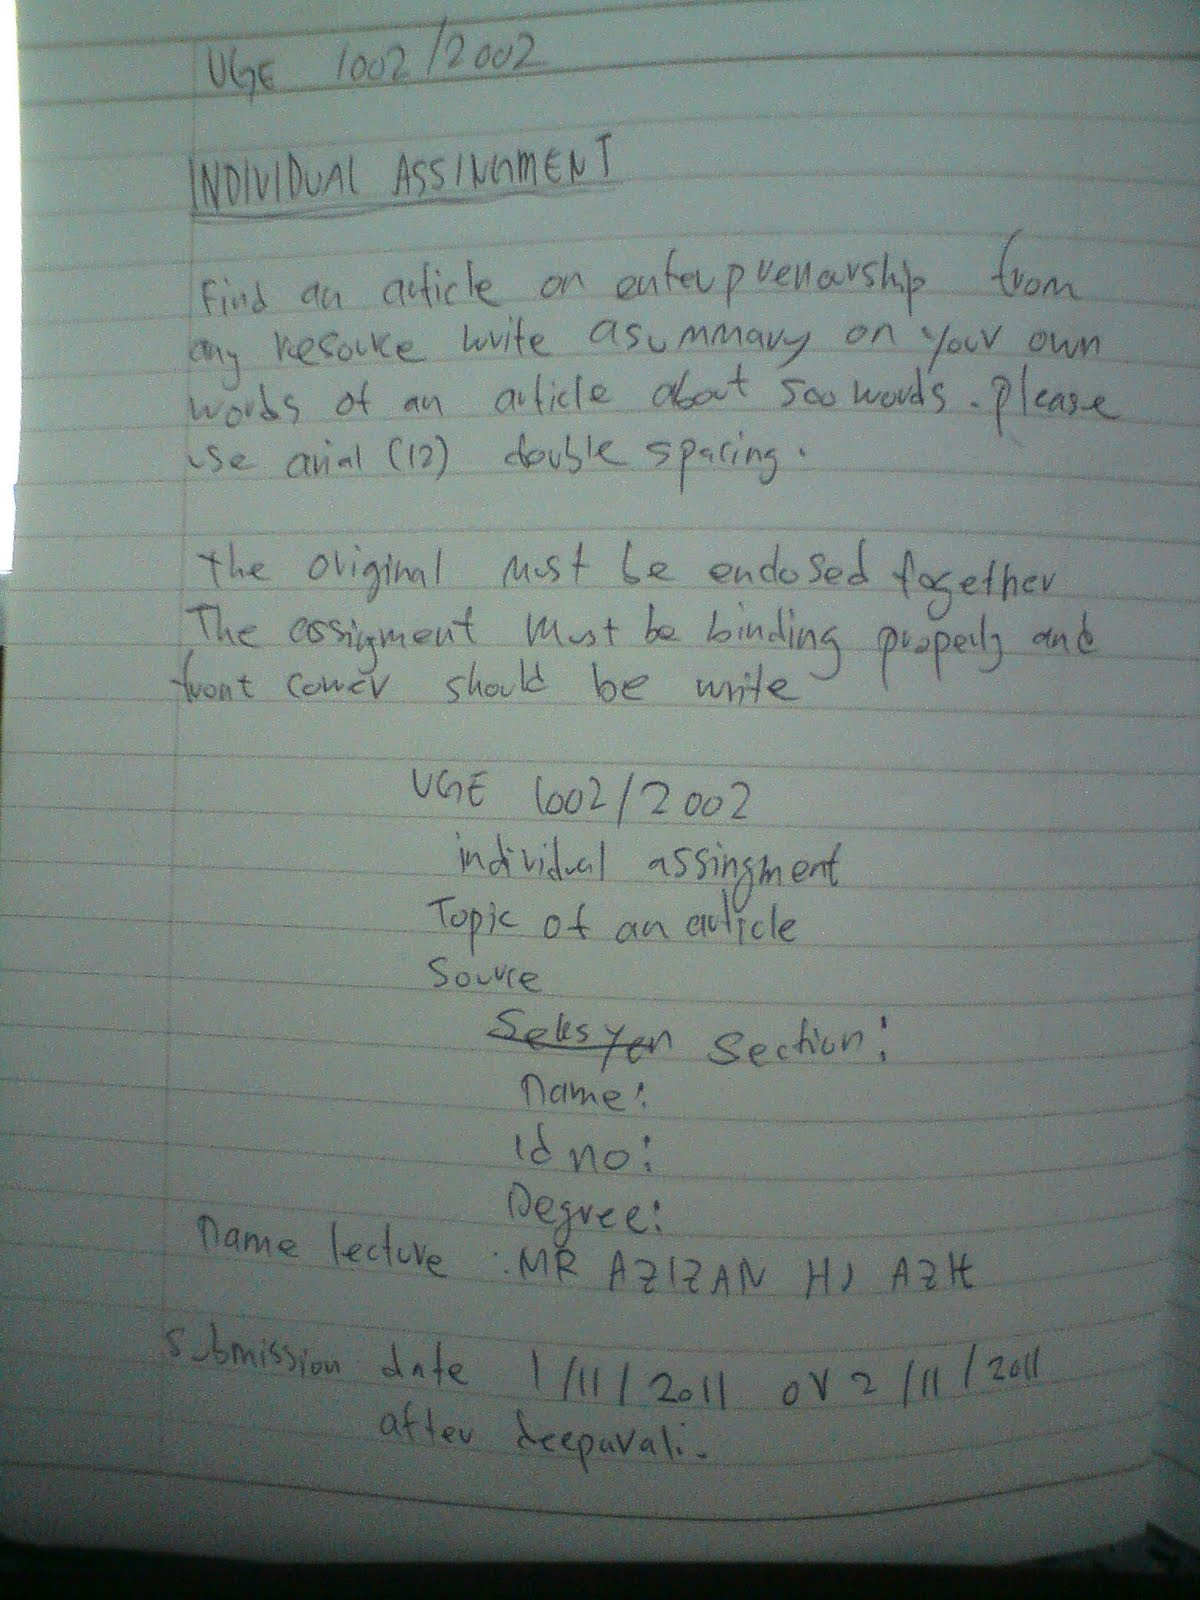 UGE 1002/2002
INDIVIDUAL ASSINGMENT
Find an article on enterprenarship from
any resource write a summary on your own
words of an article about 500 words. please
use arial (12) double spacing.
the original must be enclosed together
The assigment must be binding properly and
front cover should be write
UGE 1002/2002
individual assingment
Topic of an article
Source
Seksyen Section:
name:
Id no:
Degree:
name lecture : MR AZIZAN HJ
submission date 1/11/2011 or 2/11/2011
after deepavali.